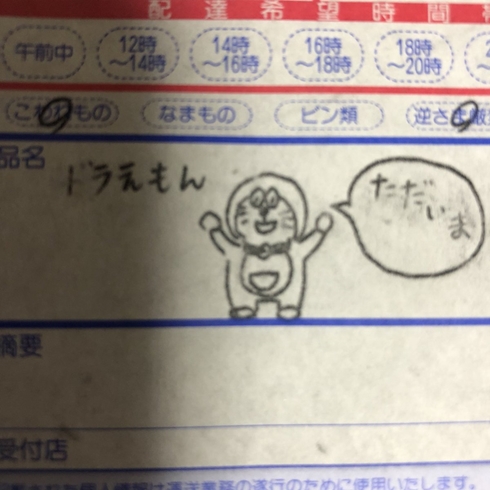 配達希望時間
午前中 12時～14時 14時～16時 16時～18時 18時～20時
こわれもの なまもの ビン類 逆さま厳
品名
ドラえもん
ただいま
摘要
受付店
個人情報は運送業務の遂行のために使用いたします。